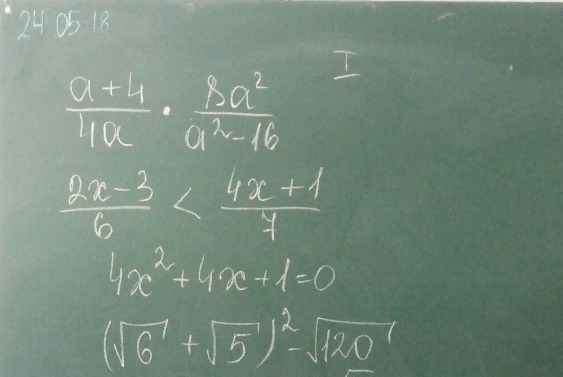 24.05.18
I
(a+4)/(4a) · (8a²)/(a²-16)
(2x-3)/6 < (4x+1)/7
4x²+4x+1=0
(√6 + √5)² - √120